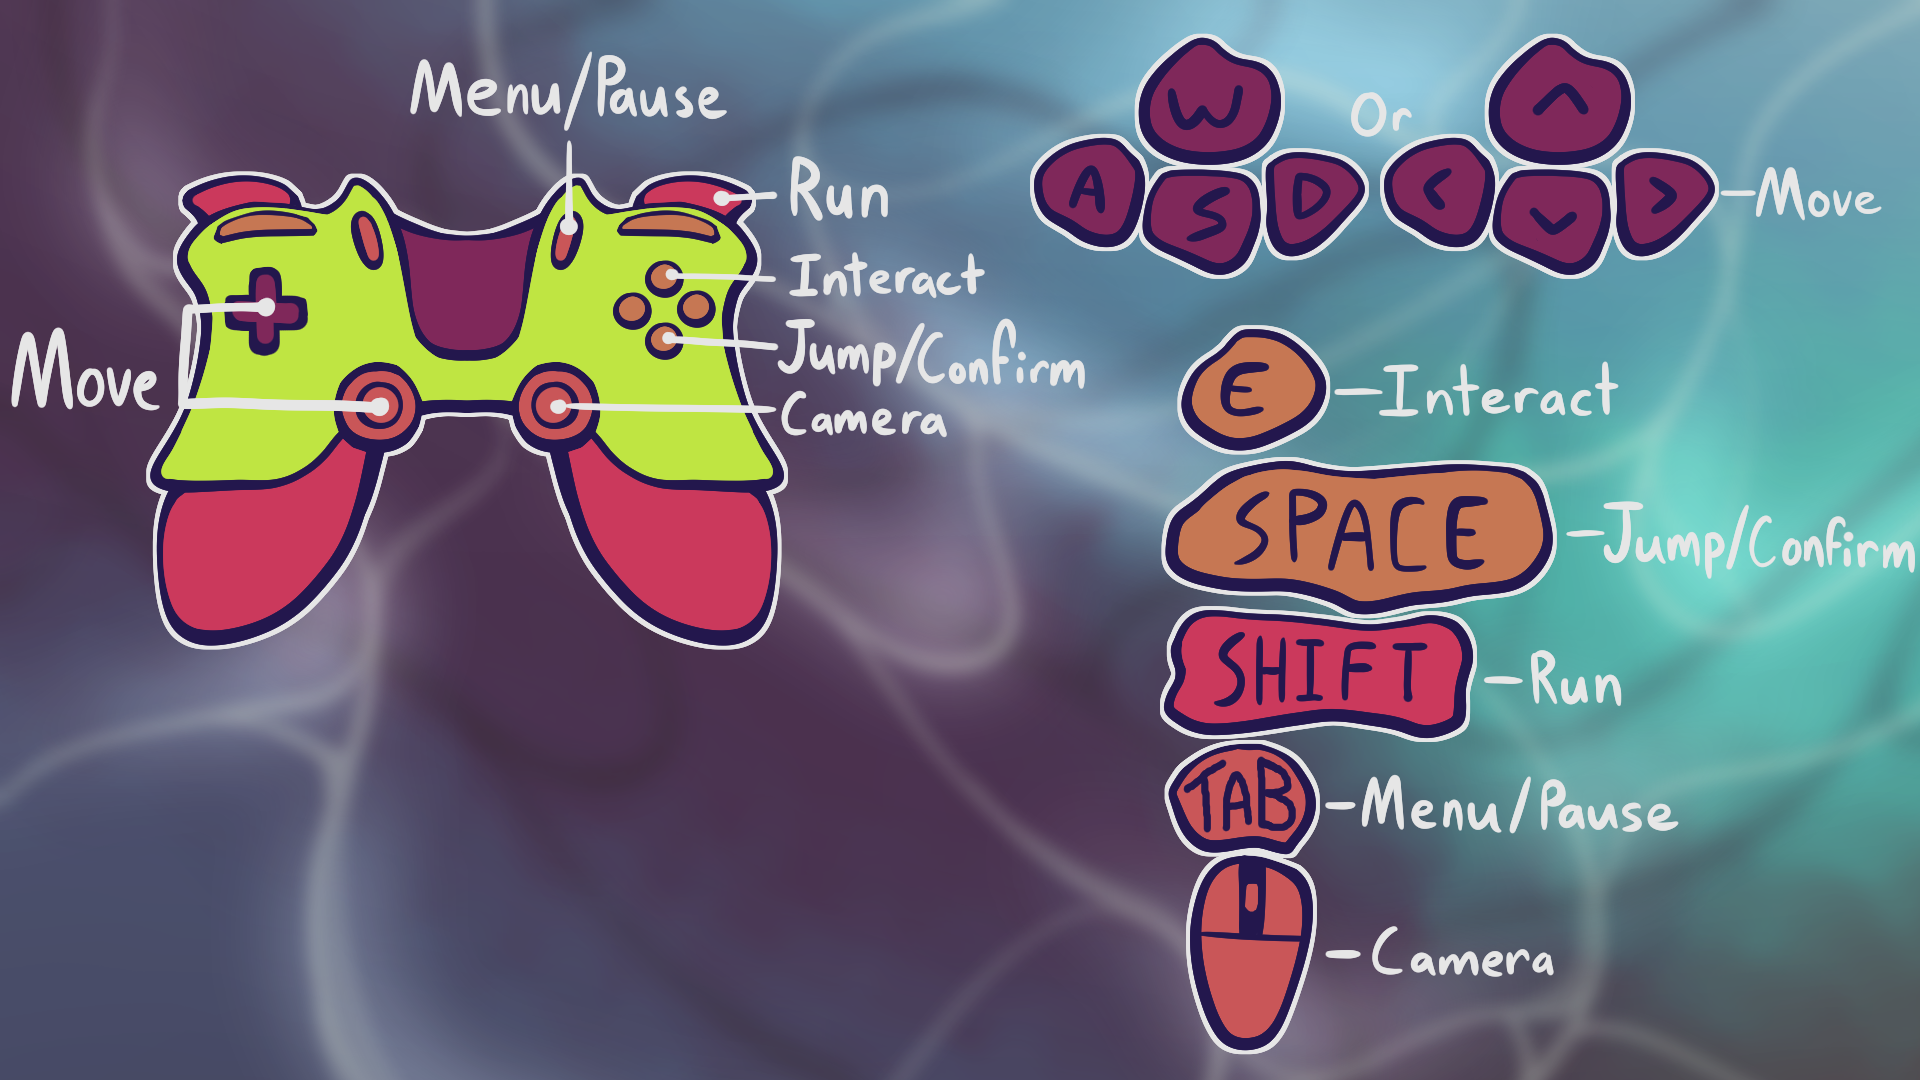 Menu/Pause
Run
Interact
Jump/Confirm
Camera
Move
W
A
S
D
Or
^
<
v
>
Move
E
Interact
SPACE
Jump/Confirm
SHIFT
Run
TAB
Menu/Pause
Camera